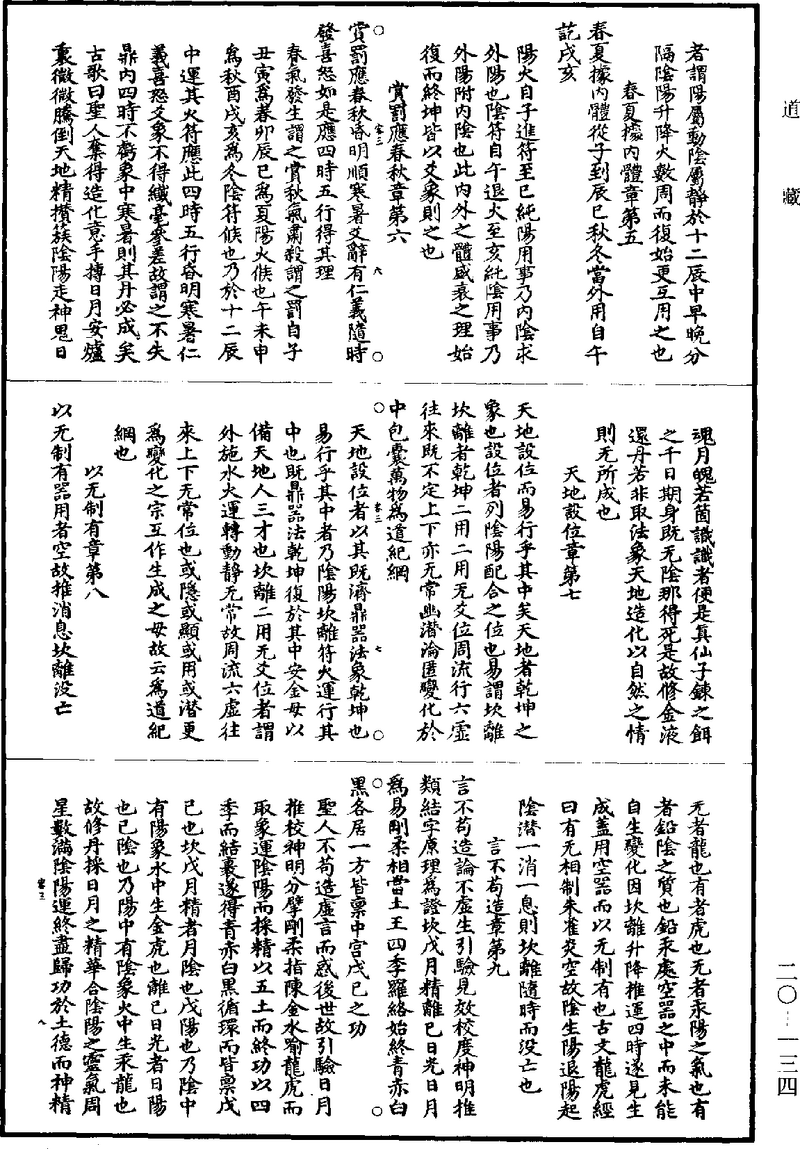 道藏
者謂陽屬動陰屬靜於十二辰中早晚分
隔陰陽升降火數周而復始更互用之也
春夏據內體章第五
春夏據內體從子到辰巳秋冬當外用自午
訖戌亥
陽火自子進符至巳純陽用事乃內陰求
外陽也陰符自午退火至亥純陰用事乃
外陽附內陰也此內外之體盛衰之理始
復而終坤皆以爻象則之也
賞罰應春秋章第六
賞罰應春秋昏明順寒暑爻辭有仁義隨時
發喜怒如是應四時五行得其理
春氣發生謂之賞秋氣肅殺謂之罰自子
丑寅為春卯辰巳為夏陽火候也午未申
為秋酉戌亥為冬陰符候也乃於十二辰
中運其火符應此四時五行昏明寒暑仁
義喜怒爻象不得纖毫參差故謂之不失
鼎內四時不虧象中寒暑則其丹必成矣
古歌曰聖人奪得造化意手搏日月安爐
裏微微騰倒天地精攢簇陰陽走神鬼日
魂月魄若箇識識者便是真仙子鍊之餌
之千日期身既无陰那得死是故修金液
還丹若非取法象天地造化以自然之情
則无所成也
天地設位章第七
天地設位而易行乎其中矣天地者乾坤之
象也設位者列陰陽配合之位也易謂坎離
坎離者乾坤二用二用无爻位周流行六虛
往來既不定上下亦无常幽潛淪匿變化於
中包囊萬物為道紀綱
天地設位者以其既濟鼎器法象乾坤也
易行乎其中者乃陰陽坎離符火運行其
中也既鼎器法乾坤復於其中安金母以
備天地人三才也坎離二用无爻位者謂
外施水火運轉動靜无常故周流六虛往
來上下无常位也或隱或顯或用或潛更
為變化之宗互作生成之母故云為道紀
綱也
以无制有章第八
以无制有器用者空故推消息坎離沒亡
无者龍也有者虎也无者汞陽之氣也有
者鉛陰之質也鉛汞處空器之中而未能
自生變化因坎離升降推運四時遂見生
成蓋用空器而以无制有也古文龍虎經
曰有无相制朱雀炎空故陰生陽退陽起
陰潛一消一息則坎離隨時而沒亡也
言不苟造章第九
言不苟造論不虛生引驗見效校度神明推
類結字原理為證坎戊月精離己日光日月
為易剛柔相當土王四季羅絡始終青赤白
黑各居一方皆稟中宮戊己之功
聖人不苟造虛言而惑後世故引驗日月
推校神明分擘剛柔指陳金水喻龍虎而
取象運陰陽而採精以五土而終功以四
季而結裹遂得青赤白黑循環而皆稟戊
己也坎戊月精者月陰也戊陽也乃陰中
有陽象水中生金虎也離己日光者日陽
也己陰也乃陽中有陰象火中生汞龍也
故修丹採日月之精華合陰陽之靈氣周
星數滿陰陽運終盡歸功於土德而神精
二〇—一三四